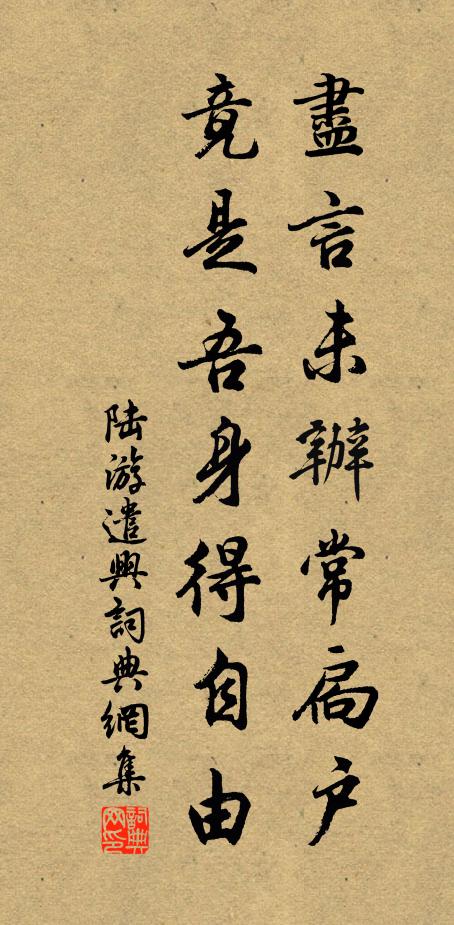 盡言未辦常扃户
竟是吾身得自由
陸游遣興詞典網集
詞典網印